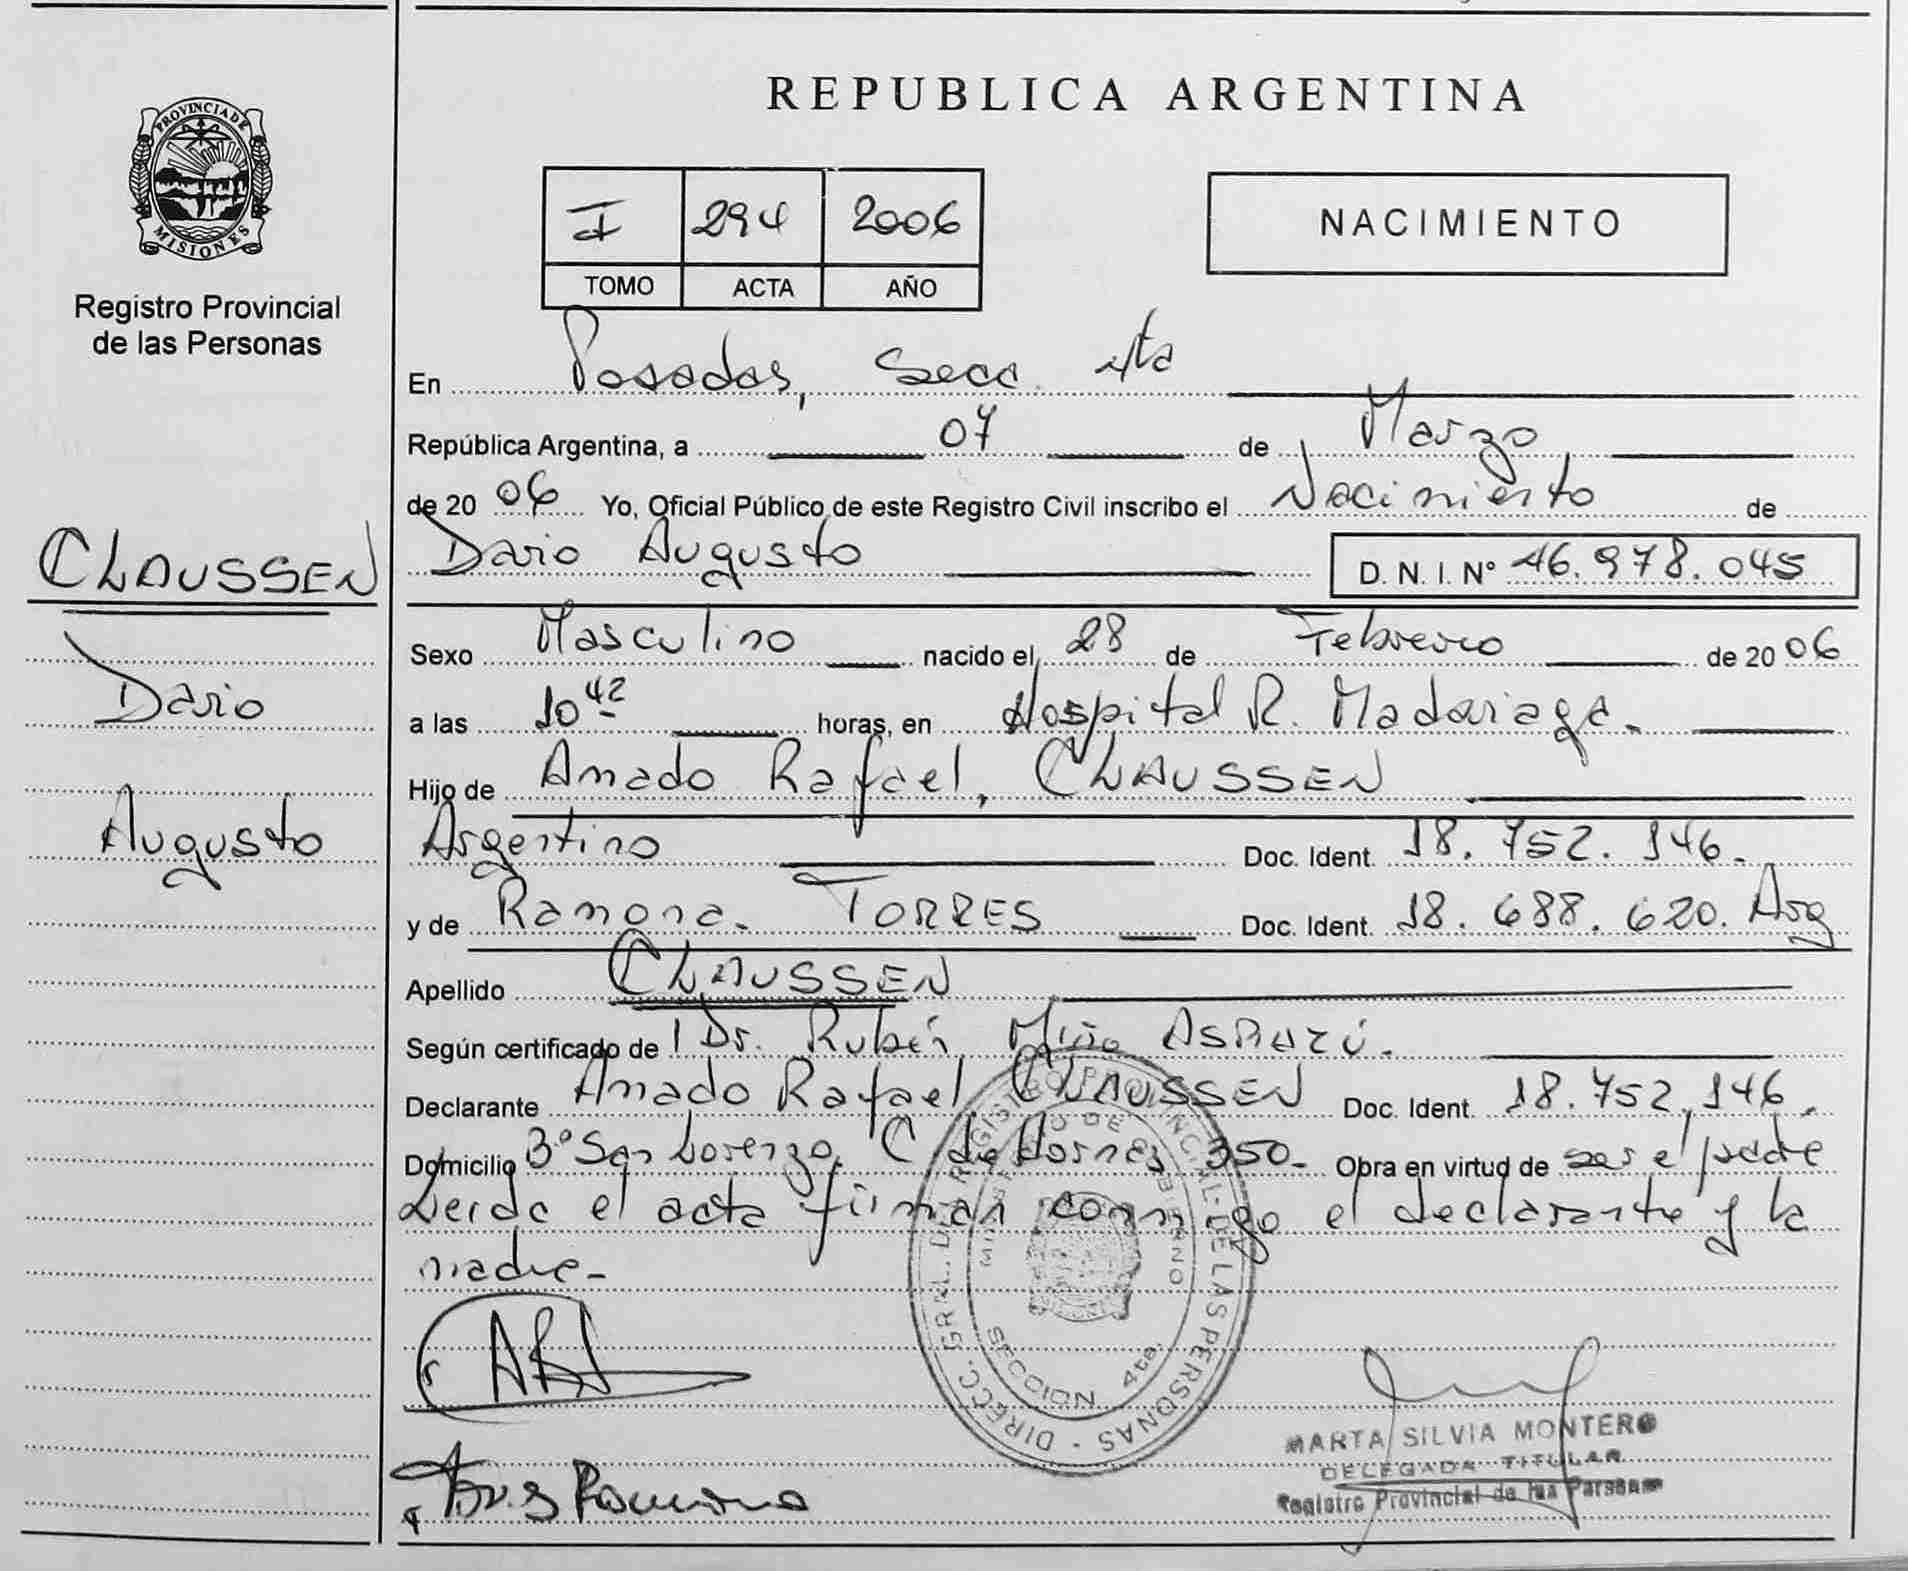 PROVINCIA DE
MISIONES
Registro Provincial
de las Personas
CLAUSSEN
Dario
Augusto
REPUBLICA ARGENTINA
I 294 2006
TOMO ACTA AÑO
NACIMIENTO
En Posadas, Secc. 4ta
República Argentina, a 07 de Marzo
de 20 06 Yo, Oficial Público de este Registro Civil inscribo el Nacimiento de
Dario Augusto D. N. I. Nº 46.978.045
Sexo Masculino nacido el 28 de Febrero de 20 06
a las 10 42 horas, en Hospital R. Madariaga.
Hijo de Amado Rafael, CLAUSSEN
Argentino Doc. Ident. 18.752.146.
y de Ramona. TORRES Doc. Ident. 18.688.620. Arg
Apellido CLAUSSEN
Según certificado de Dr. Rubén Miño
Declarante Amado Rafael CLAUSSEN Doc. Ident. 18.752.146.
Domicilio Bº San Lorenzo, C de Hornos 350- Obra en virtud de ser el padre
Leida el acta firman conmigo el declarante y la
madre-
DIRECC. GRAL. DEL REGISTRO PROVINCIAL DE LAS PERSONAS
MINISTERIO DE GOBIERNO
SECCION 4ta.
Ramona
MARTA SILVIA MONTERO
DELEGADA TITULAR
Registro Provincial de las Personas